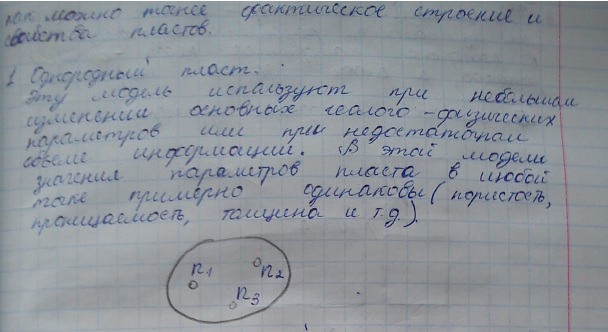 как можно точнее фактическое строение и
свойства пластов.
1 Однородный пласт.
Эту модель используют при небольшом
изменении основных геолого-физических
параметров или при недостаточном
объеме информации. В этой модели
значения параметров пласта в любой
точке примерно одинаковы (пористость,
проницаемость, толщина и т.д.).
n1 n2
n3